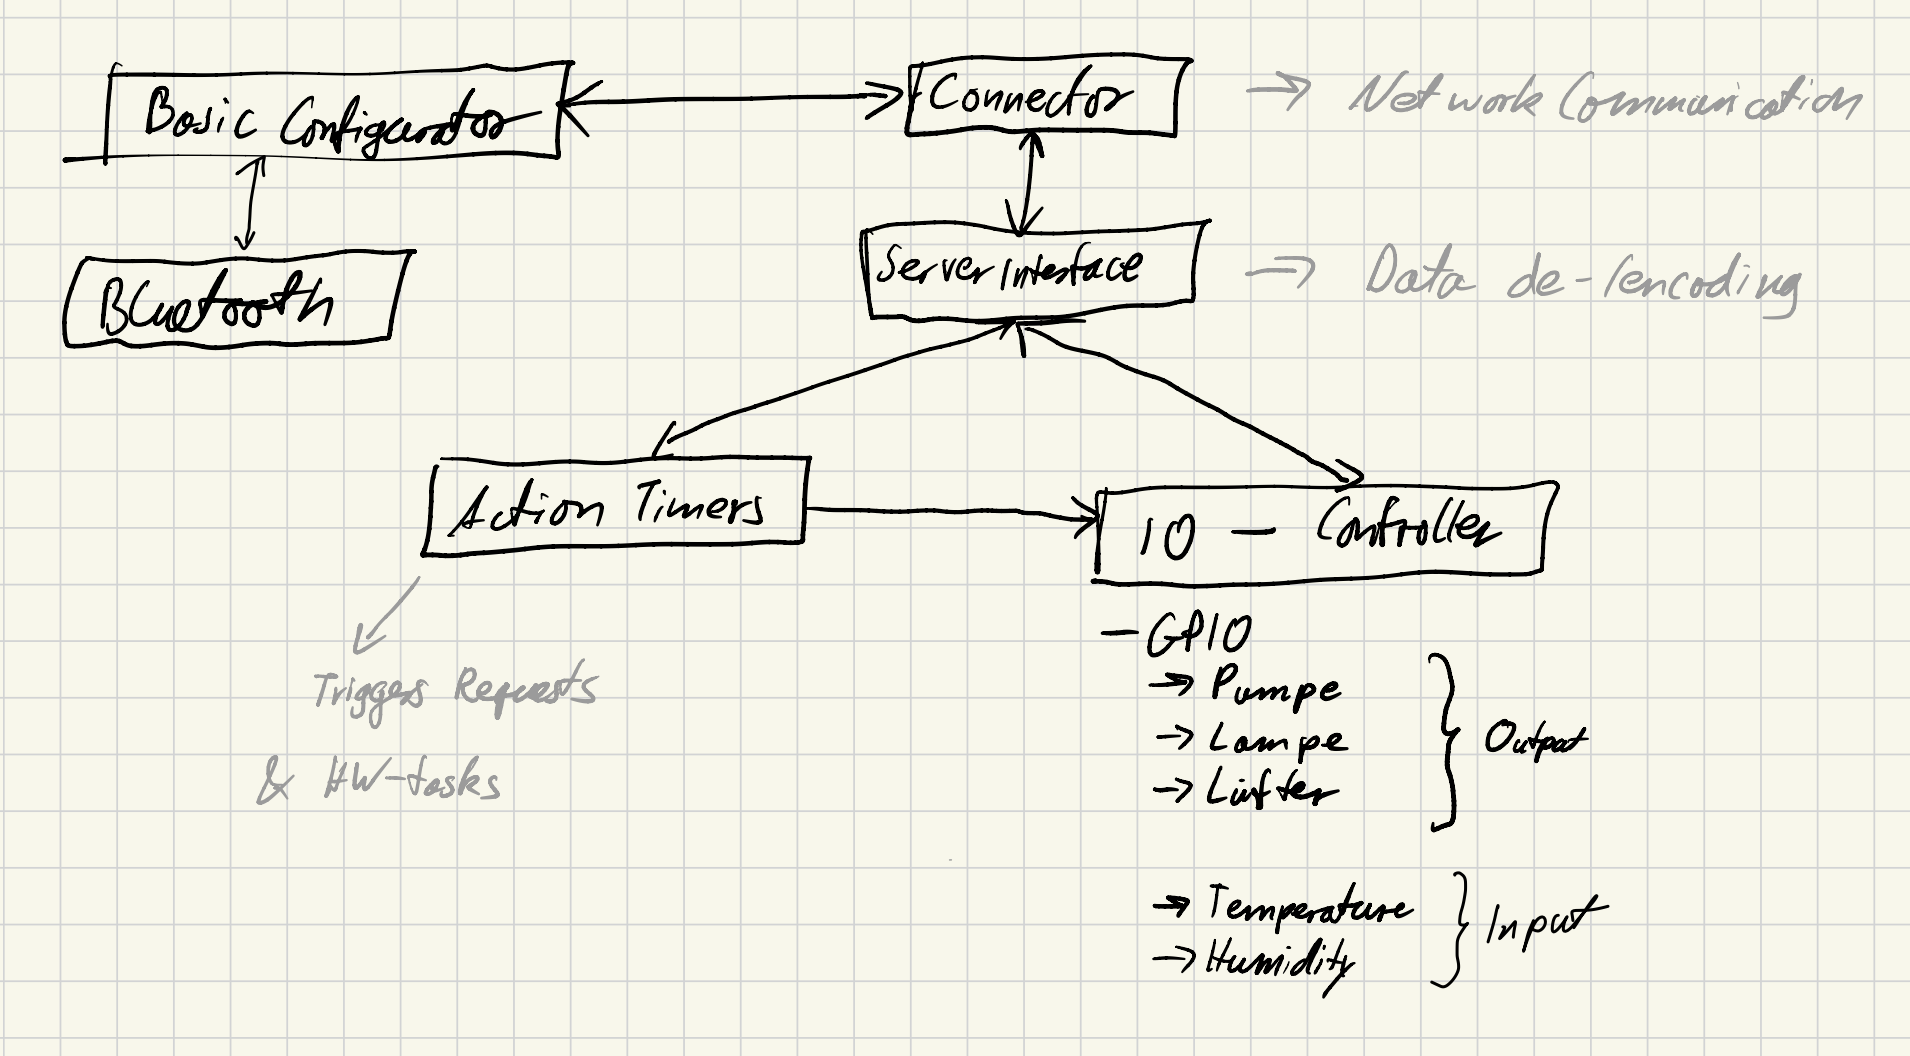 Basic Configurator
Connector
→ Network Communication
Bluetooth
Server Interface
→ Data de-/encoding
Action Timers
IO - Controller
Triggers Requests
& HW-tasks
- GPIO
→ Pumpe
→ Lampe
→ Lüfter
Output
→ Temperature
→ Humidity
Input